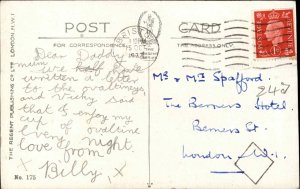 POST CARD
FOR CORRESPONDENCE
THE ADDRESS ONLY TO BE
THE REGENT PUBLISHING Co LTD LONDON N.W.1
No. 175
Dear Daddy &
mum
written a letter
to the ovaltineys,
and Vicky said
that I enjoy my
cup of ovaltine
every night,
love
from
Billy,
Mr & Mrs Spafford.
The Berners Hotel
Berners St.
London. W.1.
242